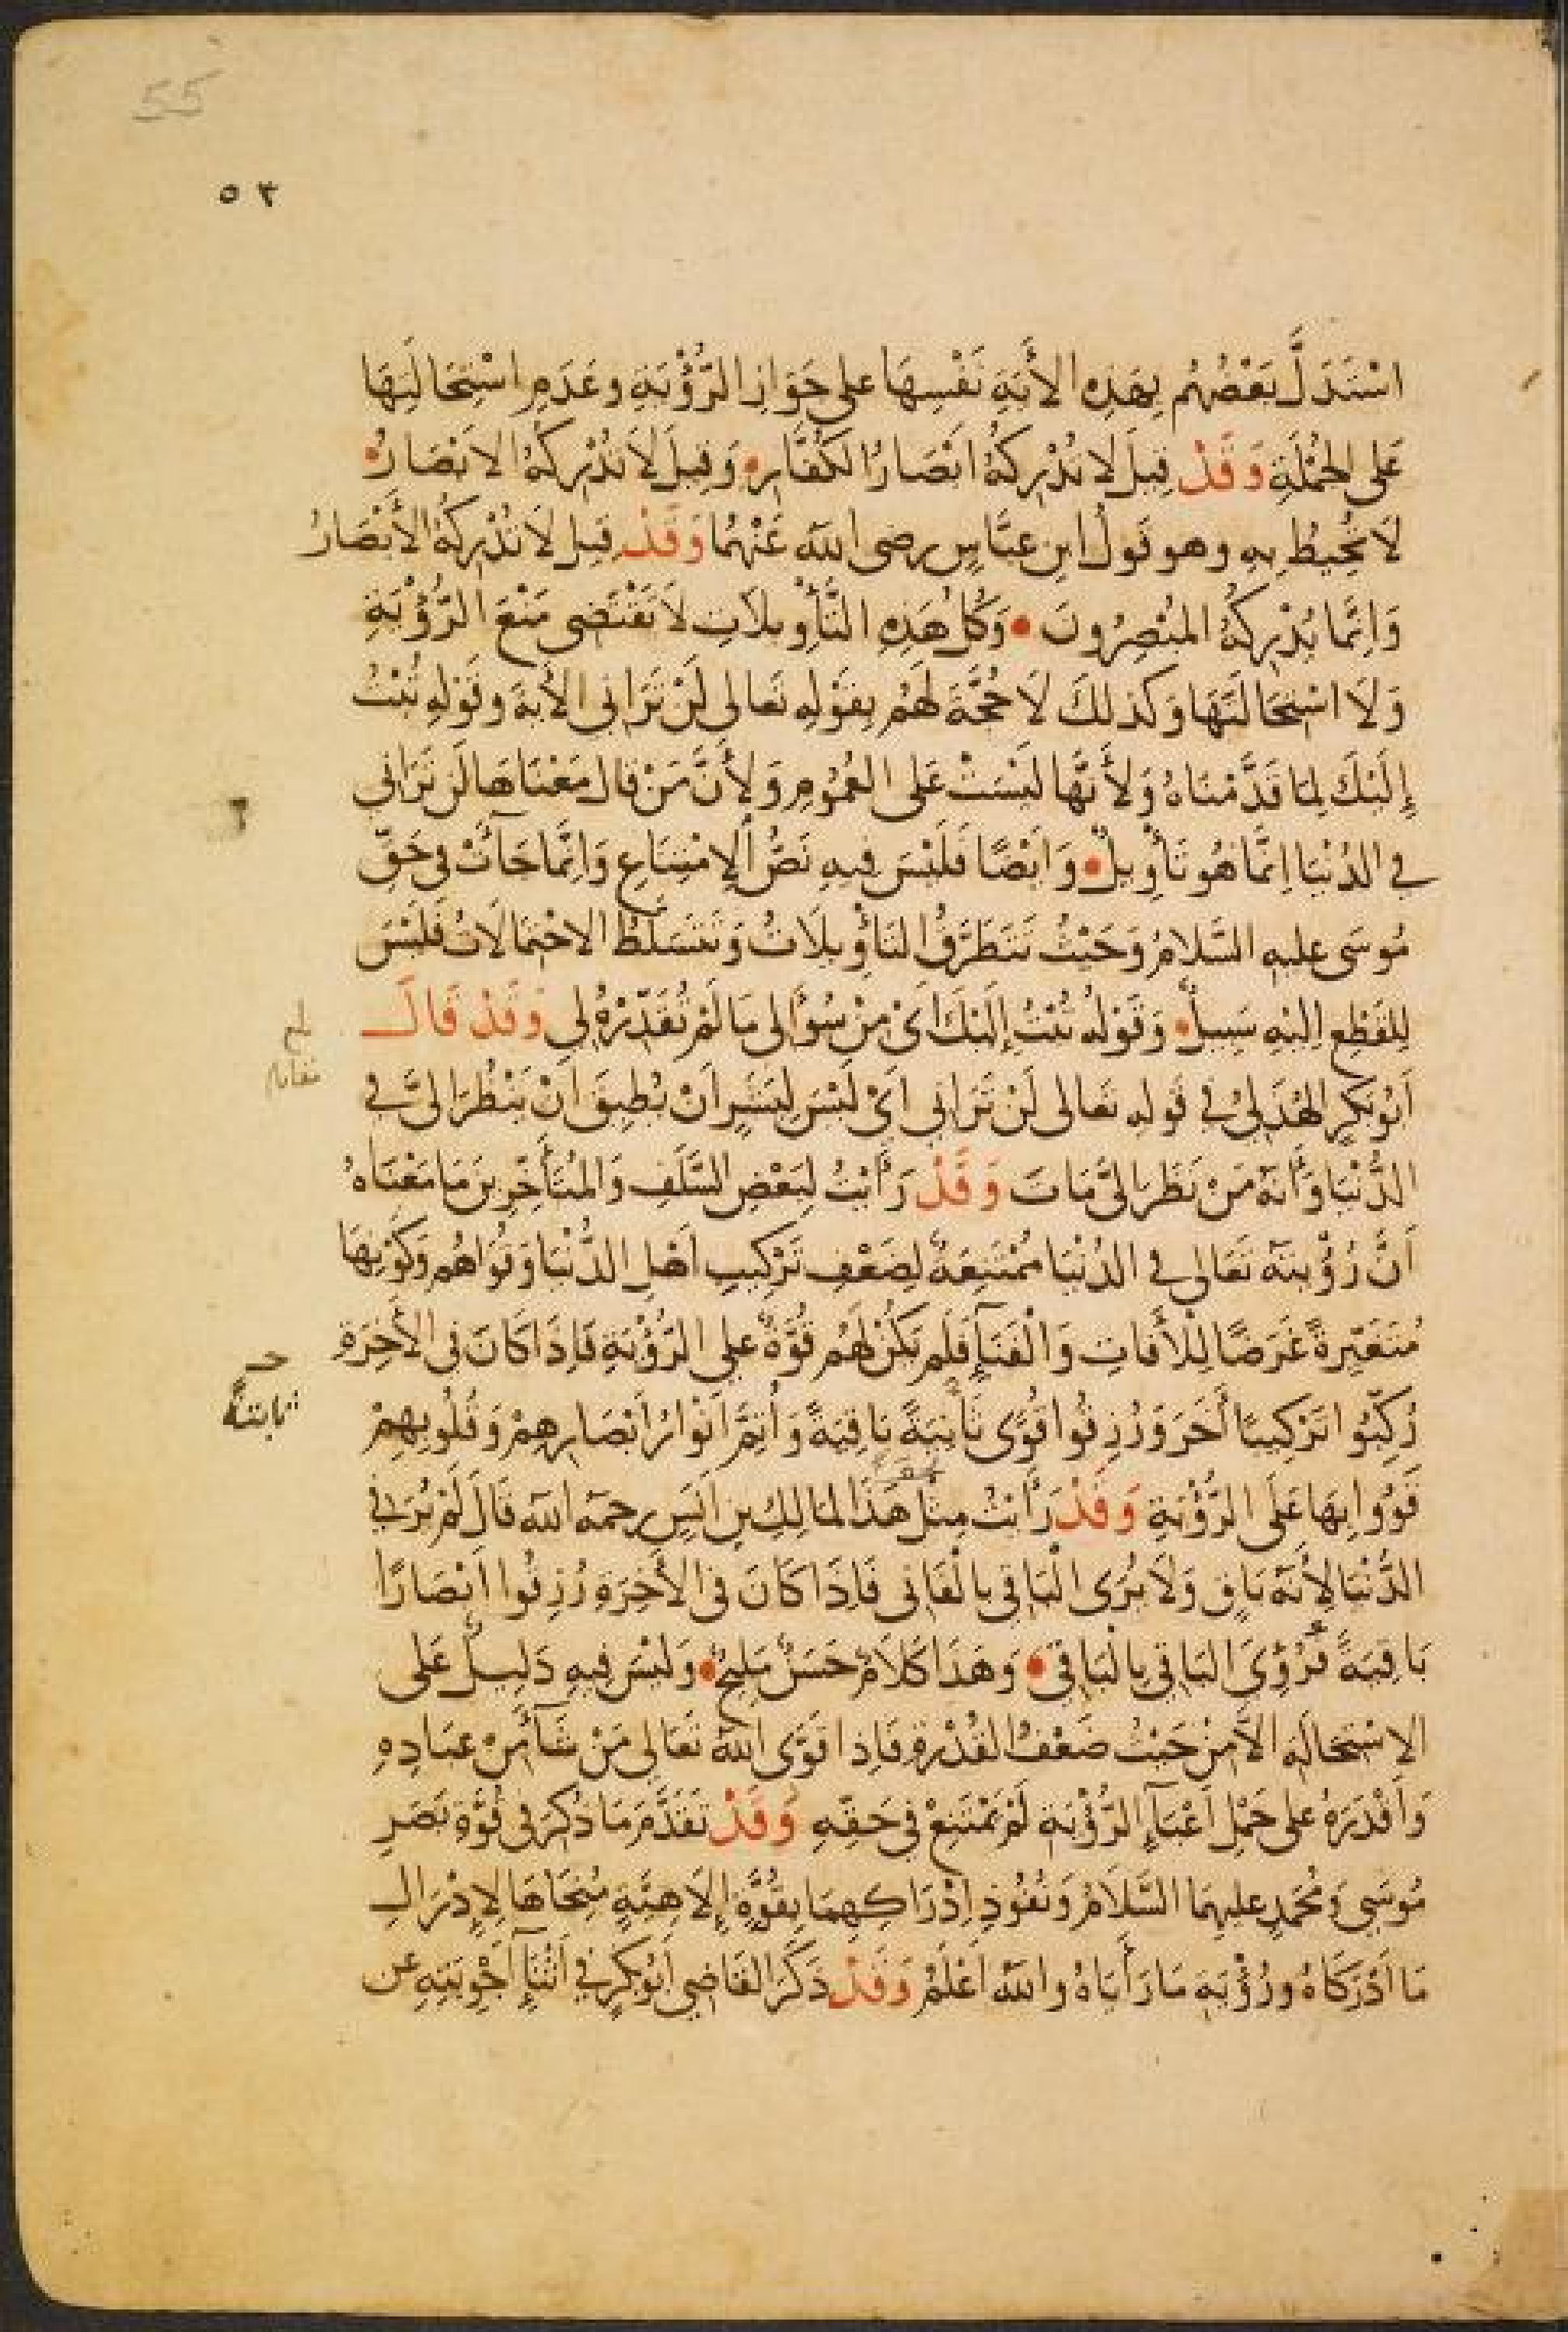 55
٥٣
اسْتَدَلَّ بَعْضُهُم بِهَذِهِ الأَيَةِ نَفْسِهَا على جَوَازِ الرُّؤْيَةِ وعَدَمِ اسْتِحَالَتِهَا
عَلى الجُمْلَةِ وَقَدْ قِيلَ لا تُدْرِكُهُ ابْصَارُ الكُفَّارِ وَقِيلَ لَا تُدْرِكُهُ الابْصَارُ
لَا تُحِيطُ بِهِ وهو قَولُ ابنِ عبَّاسٍ رضى الله عَنْهُمَا وَقَدْ قِيل لَا تُدْرِكُهُ الأَبْصَارُ
وَاِنَّمَا يُدْرِكُهُ المُبْصِرُونَ وَكُلُّ هَذِهِ التَّأْوِيلَاتِ لَا تَقْتَضِى مَنْعَ الرُّؤْيَةِ
وَلَا اسْتِحَالَتَهَا وَكَذلكَ لَا حُجَّةَ لَهُم بِقَوْلِهِ تَعالى لَنْ تَرَانى الأَيةَ وقَوْلِهِ تُبْتُ
إِلَيْكَ لِمَا قَدَّمْنَاهُ وَلأَنَّهَا لَيْسَتْ عَلى العُمُومِ وَلأَنَّ مَنْ قال مَعْنَاهَا لَن تَرَانِي
في الدُنْيَا اِنَّمَا هُو تَأْوِيلٌ وَايْضًا فَلَيْسَ فِيهِ نَصُّ الاِمْتِنَاعِ وَاِنَّمَا جَآئَتْ في حَقِّ
مُوسَى عليه السَّلامُ وَحَيْثُ تَتَطَرَّقُ التَأْوِيلَاتُ وَتَتَسَلَّطُ الاحْتِمَالَاتُ فَلَيْسَ
لِلقَطْعِ اِلَيْهِ سَبِيلٌ وَقَوْلُهُ تُبْتُ إِلَيْكَ اَىْ مِنْ سُؤَالى مَا لَمْ تُقَدِّرْهُ لِى وَقَدْ قَالَ
بلغ
مقابلة
اَبُو بَكرٍ الهُذَلِىُّ في قَولِهِ تَعالى لَنْ تَرَانِي اَىْ لَيْسَ لِبَشَرٍ اَنْ يُطِيقَ اَنْ يَنْظُرَ اِلىَّ في
الدُّنْيَا وَأَنَّهُ مَنْ نَظَرَ اِلىَّ مَاتَ وَقَدْ رَأَيْتُ لِبَعْضِ السَّلَفِ وَالمُتَأَخِّرِينَ مَا مَعْنَاهُ
اَنَّ رُؤْيتَهُ تَعَالى في الدُنْيَا مُمْتَنِعَةٌ لِضَعْفِ تَرْكِيبِ اَهْلِ الدُّنْيَا وَقُوَاهُم وَكَوْنِهَا
مُتَغَيِّرةً غَرَضًا لِلأَفَاتِ وَالْفَنَآءِ فَلَم يَكُنْ لَهُم قُوَّةٌ على الرُّؤْيَةِ فَاِذَا كَانَ فى الأَخِرَةِ
رُكِّبُوا تَرْكِيبًا أَخَرَ وَرُزِقُوا قُوًى ثَانِيَةً بَاقِيَةً وَأُتِمَّ اَنْوَارُ اَبْصَارِهِمْ وَقُلُوبِهِمْ
خـ
ثابتةً
قَوُوا بِهَا عَلَى الرُّؤْيَةِ وَقَدْ رَأَيْتُ مِثْلَ هَذَا لمَالِكِ بنِ اَنَسٍ رحمَه الله قَالَ لَمْ يُرَ في
الدُّنْيَا لِأَنَّهُ بَاقٍ وَلَا يُرَى الْبَاقي بِالْفَانِى فَاِذَا كَانَ فى الأَخِرَةِ رُزِقُوا اَبْصَارًا
بَاقِيَةً فَرُؤِىَ البَاقي بِالْبَاقي وَهَذَا كَلَامٌ حَسَنٌ مَلِيحٌ وَلَيْسَ فِيهِ دَلِيلٌ عَلى
الاسْتِحَالَةِ الاَّ مِنْ حَيْثُ ضَعْفُ القُدْرَةِ فَاِذا قَوَّى اللهُ تَعَالى مَنْ شَآءَ مِنْ عبَادِهِ
وَأَقْدَرَهُ على حَمْلِ اَعْبَآءِ الرُّؤْيَةِ لَمْ تَمْتَنِعْ في حَقِّهِ وَقَدْ تَقَدَّمَ مَا ذُكِرَ فى قُوَّةِ بَصَرِ
مُوسَى وَمُحَمدٍ عليهِمَا السَّلَامُ وَنُفُوذِ اِدْرَاكِهِمَا بِقُوَّةٍ إِلَاهِيَّةٍ مُنِحَاهَا لِاِدْرَاكِ
مَا اَدْرَكَاهُ ورُؤْيَةِ مَا رَأَيَاهُ والله اَعْلَمُ وَقَدْ ذَكَرَ القَاضِي اَبُو بَكرٍ في اَثْنَآءِ اَجْوِبَتِهِ عن